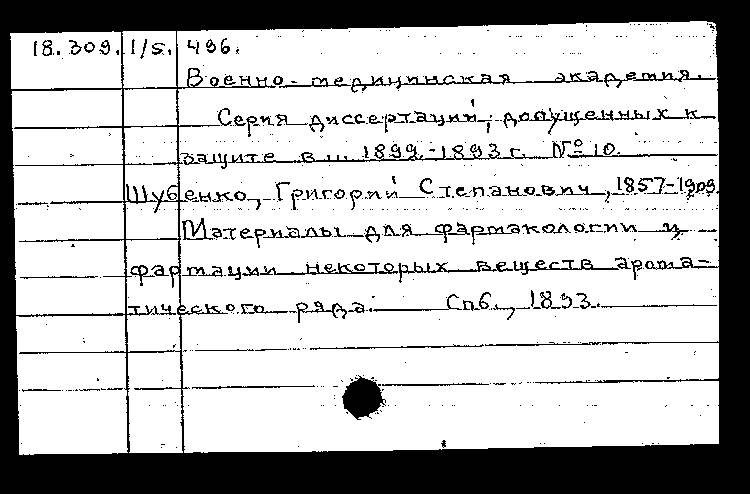 18.309. 1/5. 496.
Военно-медицинская академия.
Серия диссертаций, допущенных к
защите в ... 1892-1893 г. № 10.
Шубенко, Григорий Степанович, 1857-1909.
Материалы для фармакологии и
фармации некоторых веществ арома-
тического ряда. Спб., 1893.